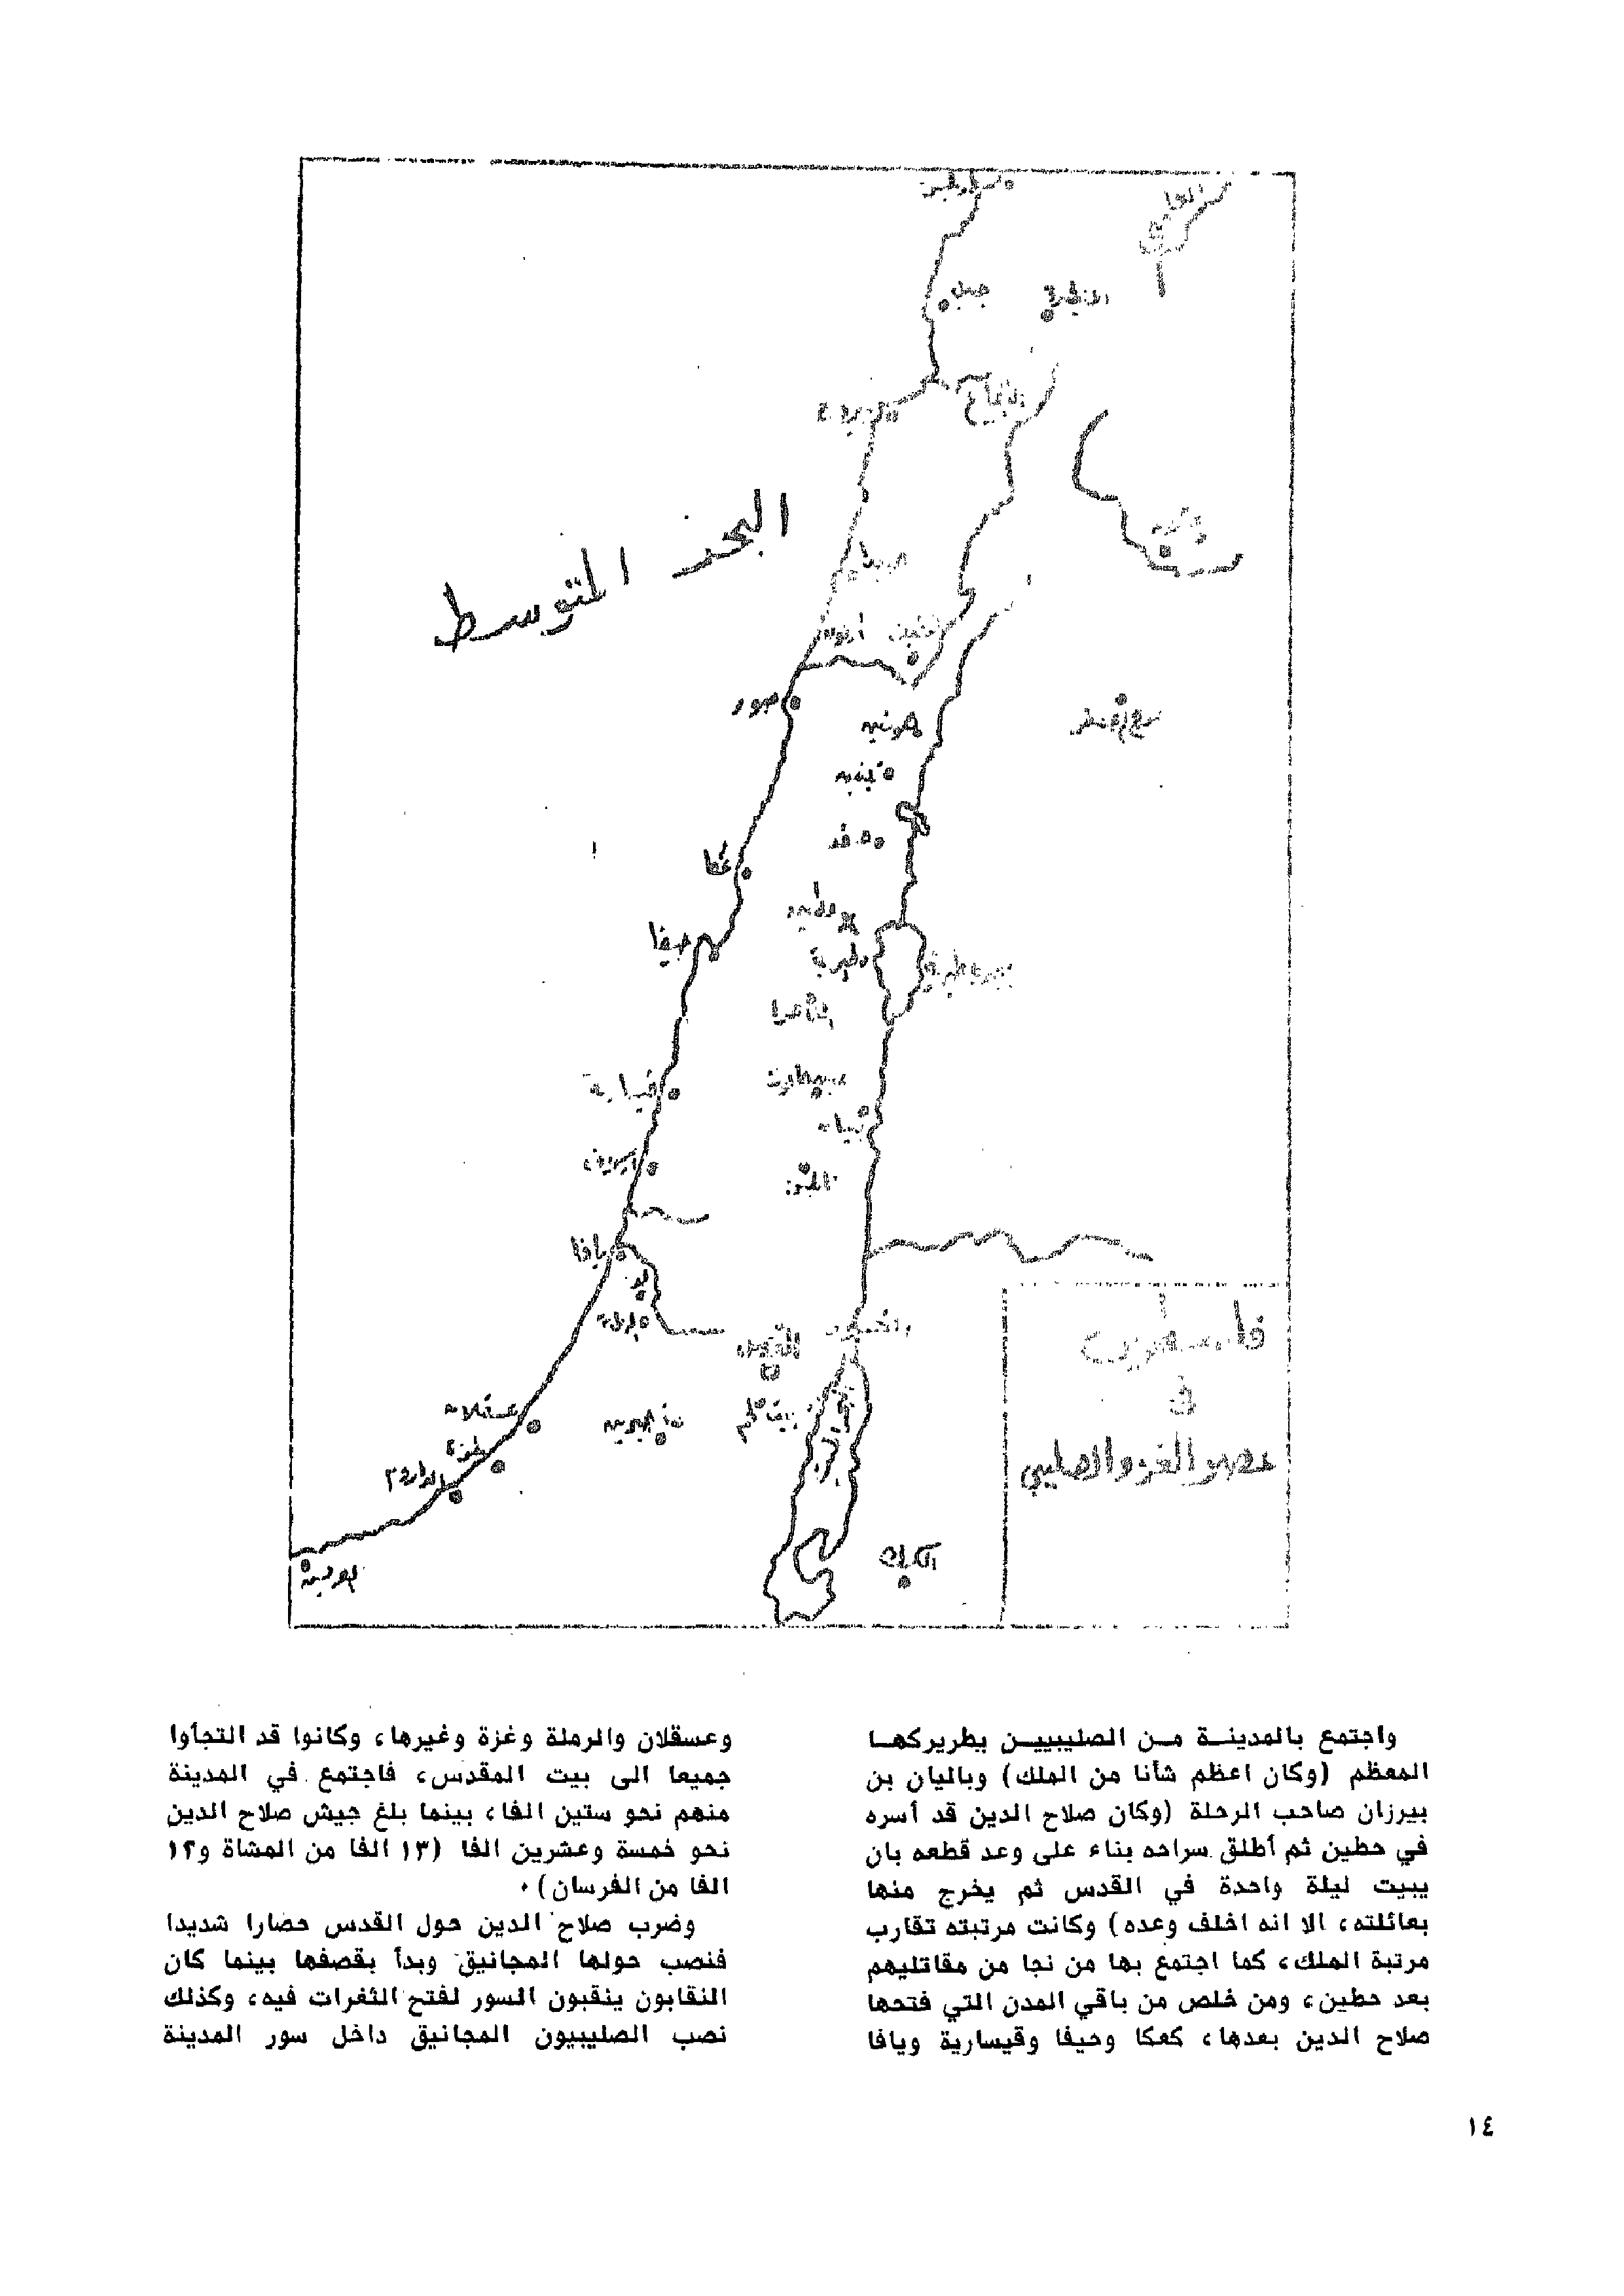 جبيل
البحر المتوسط
صور
تبنين
صفد
عكا
حيفا
طبرية
بحيرة طبرية
قيسارية
ارسوف
يافا
لد
الرملة
القدس
بيت لحم
عسقلان
غزة
الداروم
الكرك
فلسطين
في
عصر الغزو الصليبي
واجتمع بالمدينــة مــن الصليبييــن بطريركهــا
المعظم (وكان اعظم شأنا من الملك) وباليان بن
بيرزان صاحب الرحلة (وكان صلاح الدين قد أسره
في حطين ثم أطلق سراحه بناء على وعد قطعه بان
يبيت ليلة واحدة في القدس ثم يخرج منها
بعائلته، الا انه اخلف وعده) وكانت مرتبته تقارب
مرتبة الملك، كما اجتمع بها من نجا من مقاتليهم
بعد حطين، ومن خلص من باقي المدن التي فتحها
صلاح الدين بعدها، كعكا وحيفا وقيسارية ويافا
وعسقلان والرملة وغزة وغيرها، وكانوا قد التجأوا
جميعا الى بيت المقدس، فاجتمع في المدينة
منهم نحو ستين الفا، بينما بلغ جيش صلاح الدين
نحو خمسة وعشرين الفا (١٣ الفا من المشاة و١٢
الفا من الفرسان).
وضرب صلاح الدين حول القدس حصارا شديدا
فنصب حولها المجانيق وبدأ بقصفها بينما كان
النقابون ينقبون السور لفتح الثغرات فيه، وكذلك
نصب الصليبيون المجانيق داخل سور المدينة
١٤